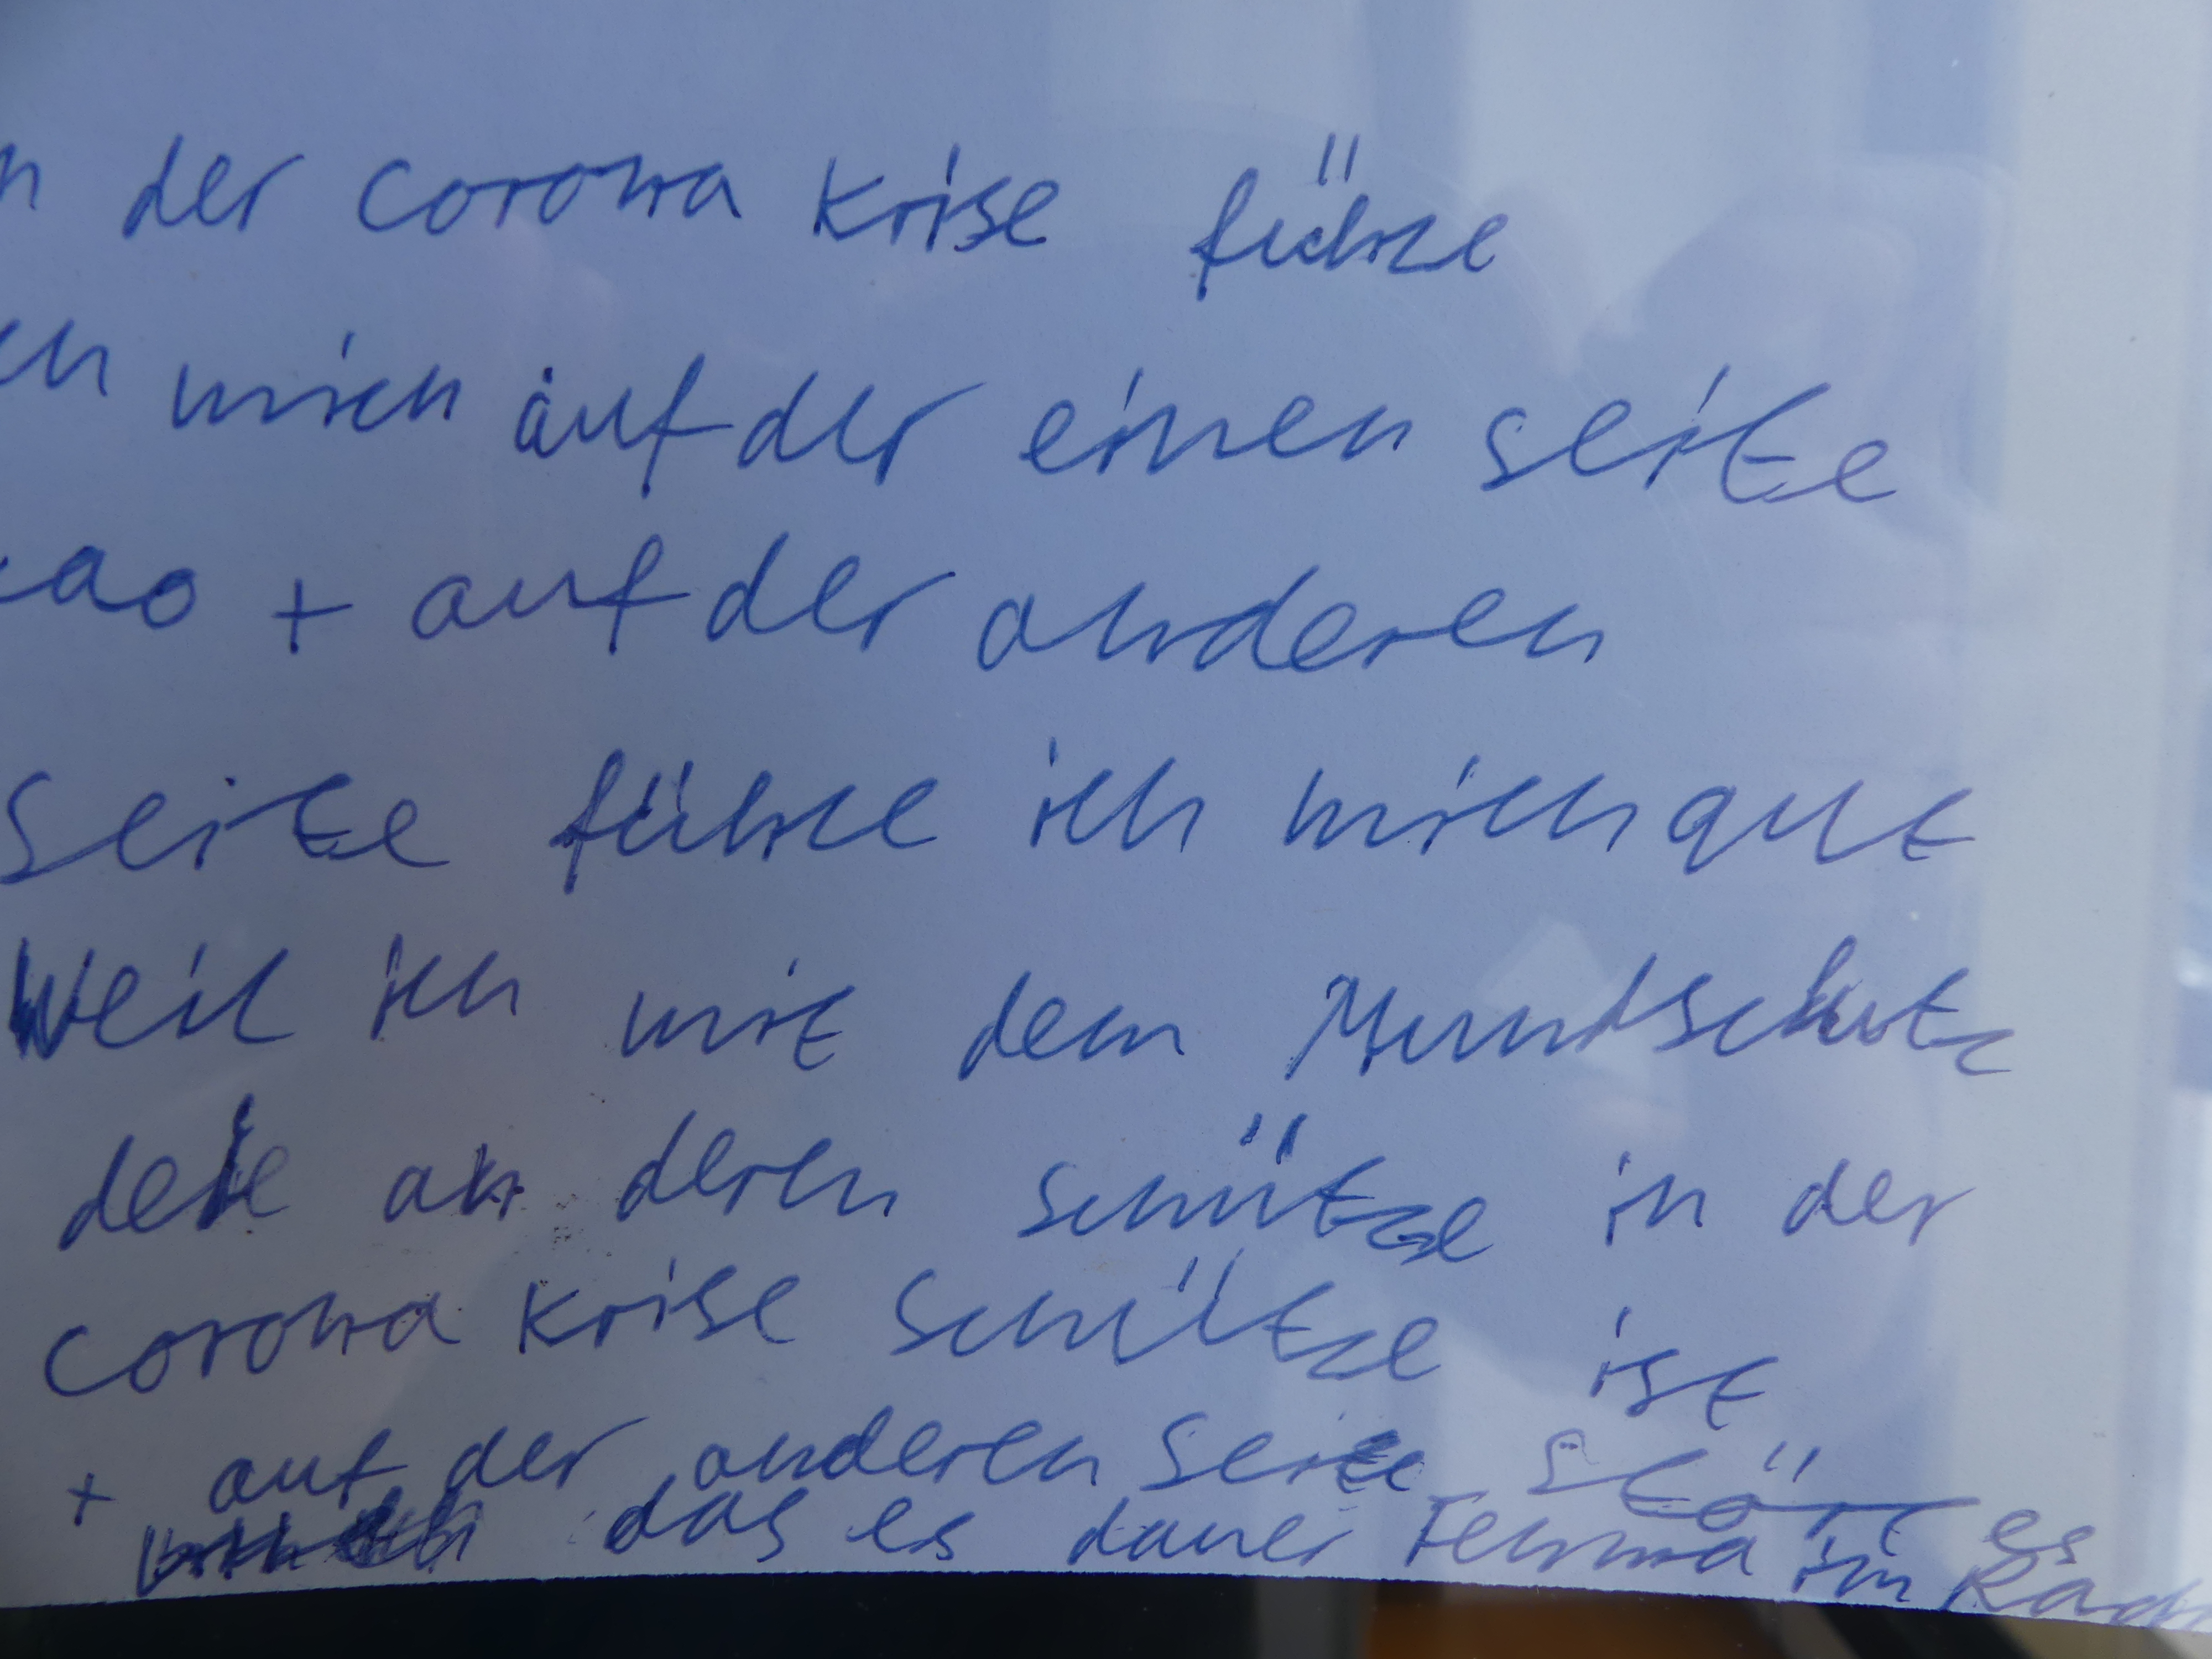 n der corona krise fühle
ch mich auf der einen seite
cao + auf der anderen
Seite fühle ich mich gut
Weil ich mit dem Mundschutz
deie an deren schütze in der
corona krise schütze ist
+ auf der anderen Seite Stört es
mich das es dauer Tehma im Radi